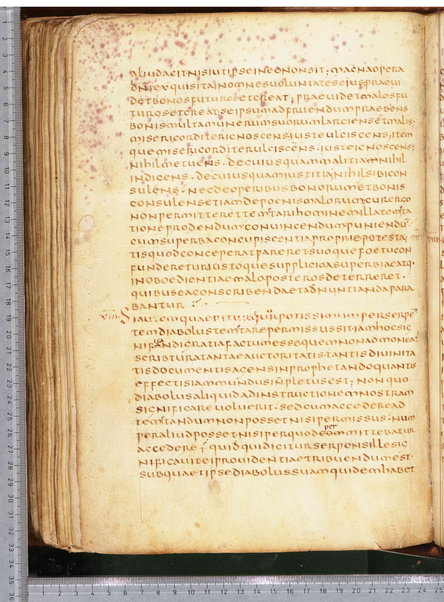 aliud agit nisi ut ipse in eo non sit; magna opera
dni exquisita in omnes voluntates eius praevi
det bonos futuros et creat; praevidet malos fu
turos et creat se ipsum ad fruendum praebens
bonis multa munerum suorum largiens et malis,
misericorditer ignoscens iuste ulciscens, item
que misericorditer ulciscens. iuste ignoscens;
nihil metuens. de cuiusquam malitia nihil
indigens. de cuiusquam iustitia; nihil sibi con
sulens. nec de operibus bonorum et bonis
consulens etiam de poenis malorum. cur ergo
non permitteret temtari hominem illa temta
tione prodendum convincendum puniendu
cum superba concupiscentia propriae potesta
tis quod conceperat pareret suoque foetu con
funderetur iustoque supplicio a superbiae atq.
inoboedientiae malo posteros deterreret.
quibus ea conscribenda et adnuntianda para
bantur
Si autem quaeritur cur potissimum per serpe
tem diabolus temtare permissus sit iam hoc sig
nificandi gratia factum esse quem non admoneat
scribtura tantae auctoritatis tantis divinita
tis documentis agens in prophetando quantis
effectis iam mundus inpletus est; non quo
diabolus aliquid ad instructionem nostram
significare voluerit. sed cum accedere ad
temtandum non posset nisi permissus. num
per aliud posset nisi per quod permittebatur
accedere; quidquid igitur serpens ille sig
nificavit ei providentiae tribuendum est
sub qua et ipse diabolus suam quidem habet